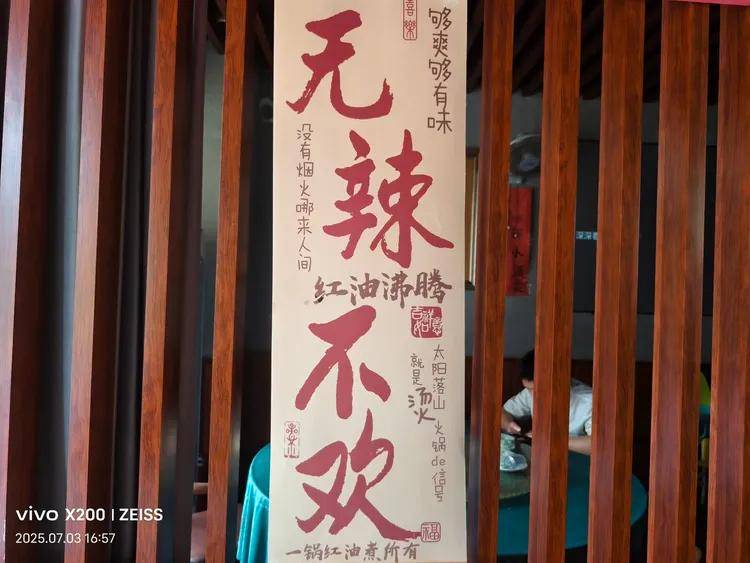 无辣不欢
够爽够有味
没有烟火哪来人间
红油沸腾
太阳落山
就是
火锅de信号
一锅红油煮所有
喜樂
福
vivo X200 | ZEISS
2025.07.03 16:57